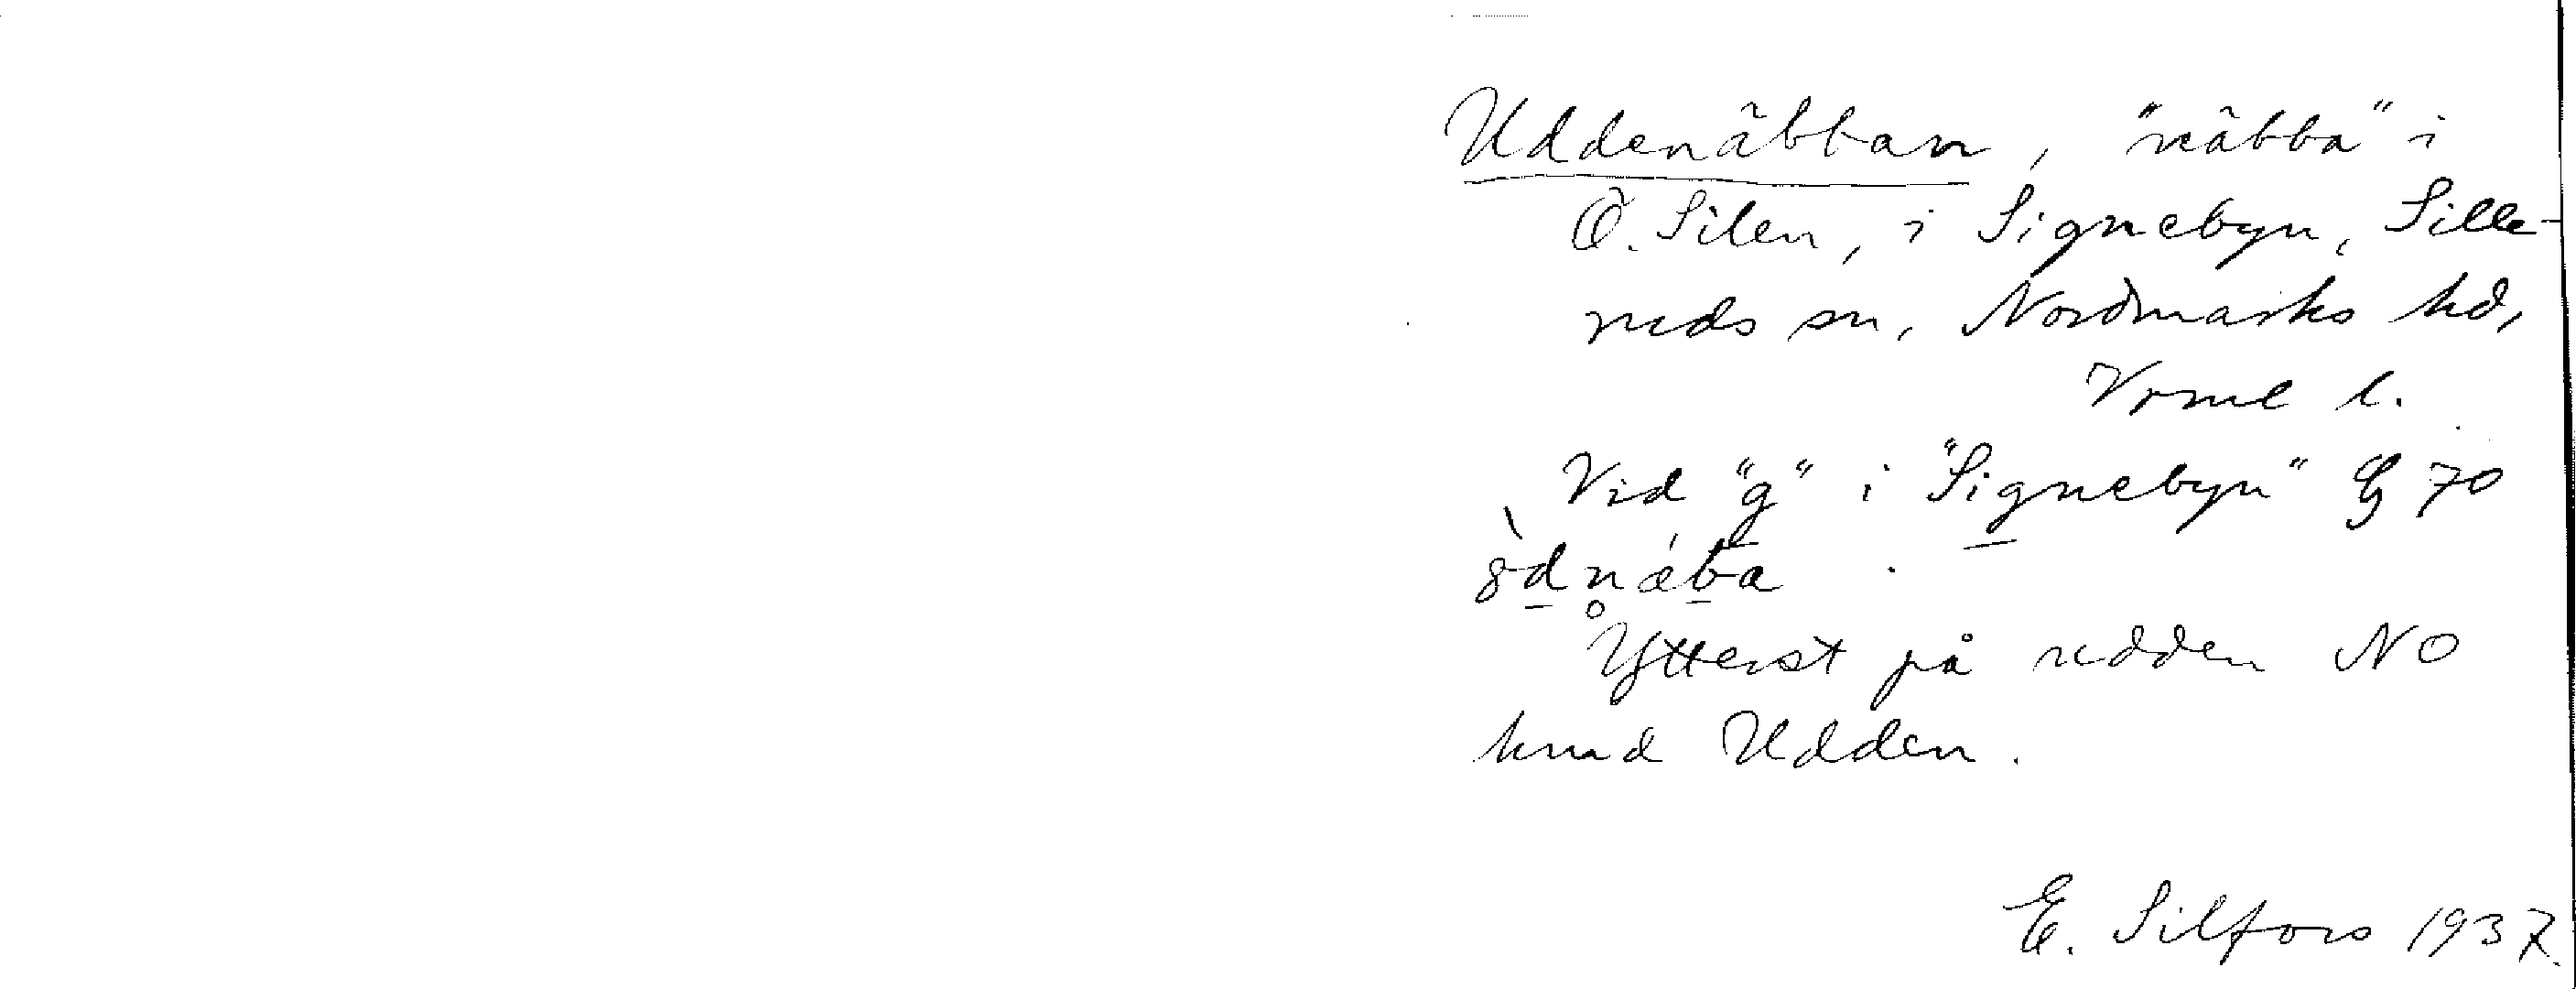 Uddenäbban, "näbba" i
Ö. Silen, i Signebyn, Sille-
ruds sn, Nordmarks hd,
Vrml l.
Vid "g" i "Signebyn" G 70
Ytterst på udden NO
hmd Udden.
E. Silfors 1937.